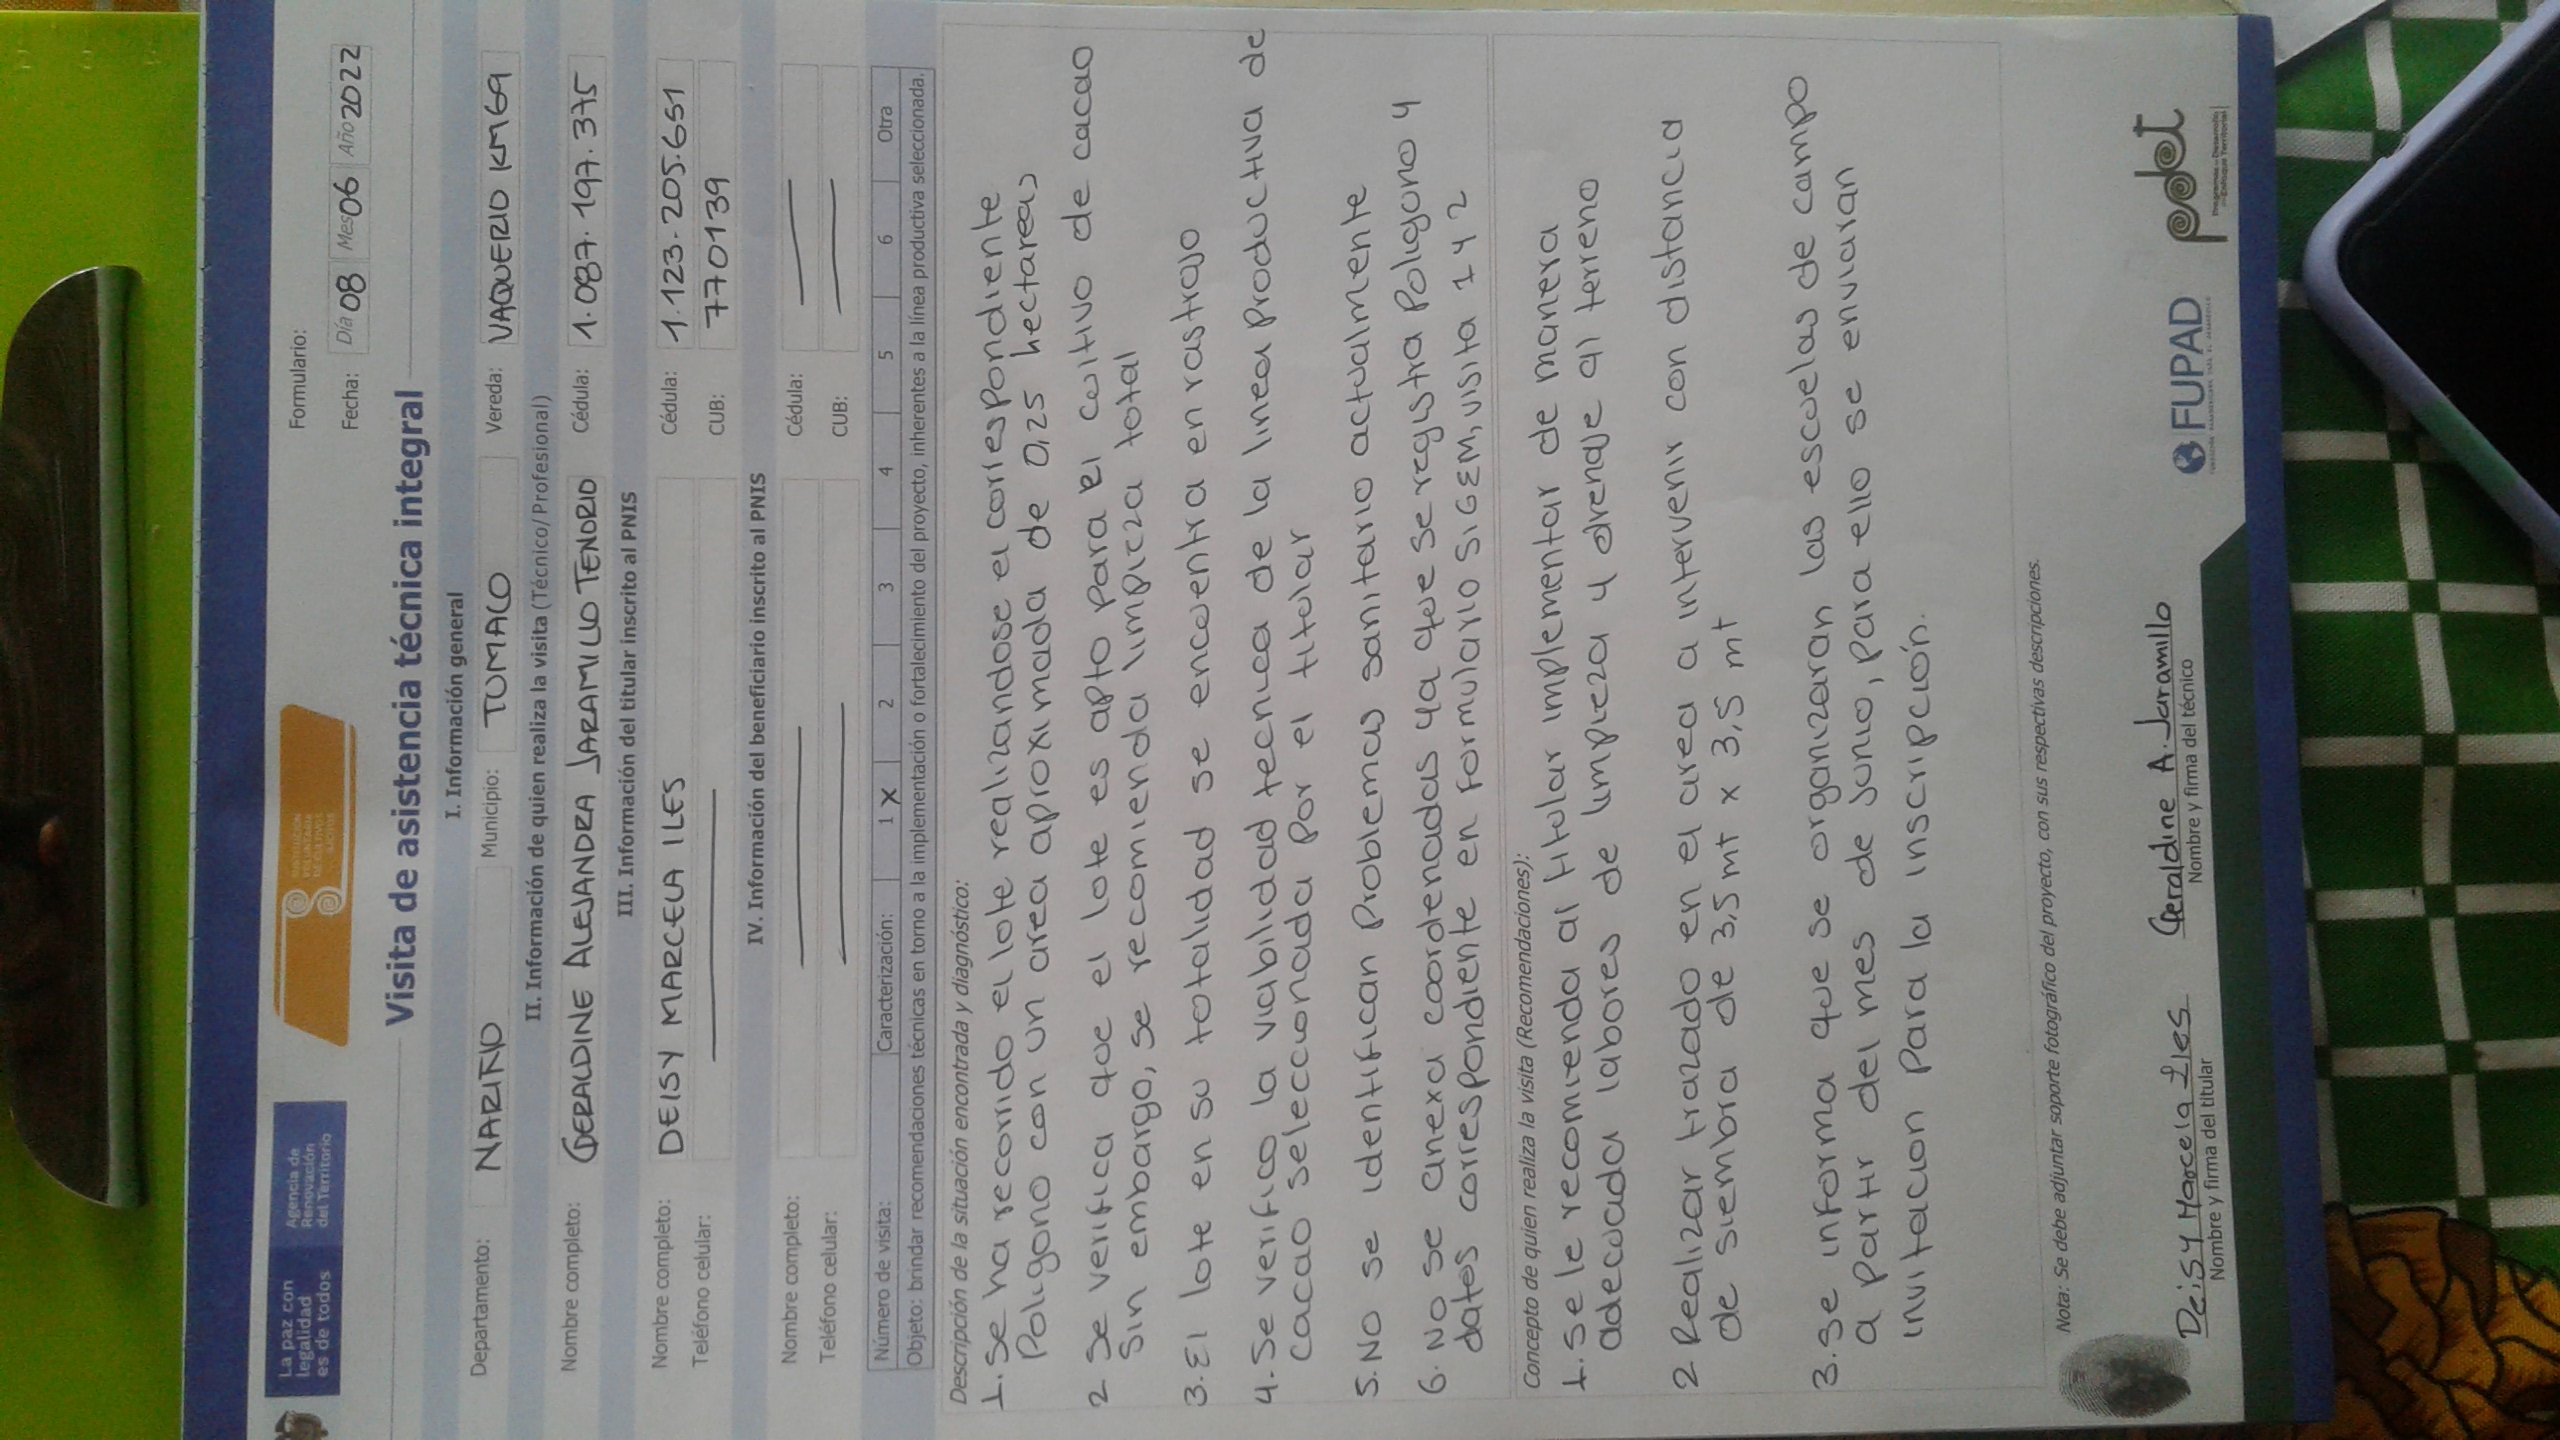 La paz con
legalidad
es de todos
Agencia de
Renovación
del Territorio
SUSTITUCIÓN
VOLUNTARIA
DE CULTIVOS
ILÍCITOS
Formulario:
Fecha: Día 08 Mes 06 Año 2022
Visita de asistencia técnica integral
I. Información general
Departamento: NARIÑO Municipio: TUMACO Vereda: VAQUERIO KM69
II. Información de quien realiza la visita (Técnico/Profesional)
Nombre completo: GERALDINE ALEJANDRA JARAMILLO TENORIO Cédula: 1.087.197.375
III. Información del titular inscrito al PNIS
Nombre completo: DEISY MARCELA ILES Cédula: 1.123.205.651
Teléfono celular: CUB: 770139
IV. Información del beneficiario inscrito al PNIS
Nombre completo: Cédula:
Teléfono celular: CUB:
Número de visita: Caracterización: 1 X 2 3 4 5 6 Otra
Objeto: brindar recomendaciones técnicas en torno a la implementación o fortalecimiento del proyecto, inherentes a la línea productiva seleccionada.
Descripción de la situación encontrada y diagnóstico:
1. Se ha recorrido el lote realizandose el correspondiente
Poligono con un area aproximada de 0,25 hectareas
2 Se verifica que el lote es apto para El cultivo de cacao
Sin embargo, se recomienda limpieza total
3. El lote en su totalidad se encuentra en rastrojo
4. Se verifico la viabilidad tecnica de la linea productiva de
cacao seleccionada por el titular
5. No se identifican Problemas sanitario actualmente
6. No se anexa coordenadas ya que se registra Poligono y
dates correspondiente en Formulario SIGEM, visita 1 y 2
Concepto de quien realiza la visita (Recomendaciones):
1. Se le recomienda al titular implementar de manera
adecuada labores de limpieza y drenaje al terreno
2 Realizar trazado en el area a intervenir con distancia
de siembra de 3,5 mt x 3,5 mt
3. Se informa que se organizaran las escuelas de campo
a partir del mes de Junio, para ello se enviaran
invitacion para la inscripción.
Nota: Se debe adjuntar soporte fotográfico del proyecto, con sus respectivas descripciones.
Deisy Marcela Iles
Nombre y firma del titular
Geraldine A. Jaramillo
Nombre y firma del técnico
FUPAD
pdet
Programas de Desarrollo
con Enfoque Territorial